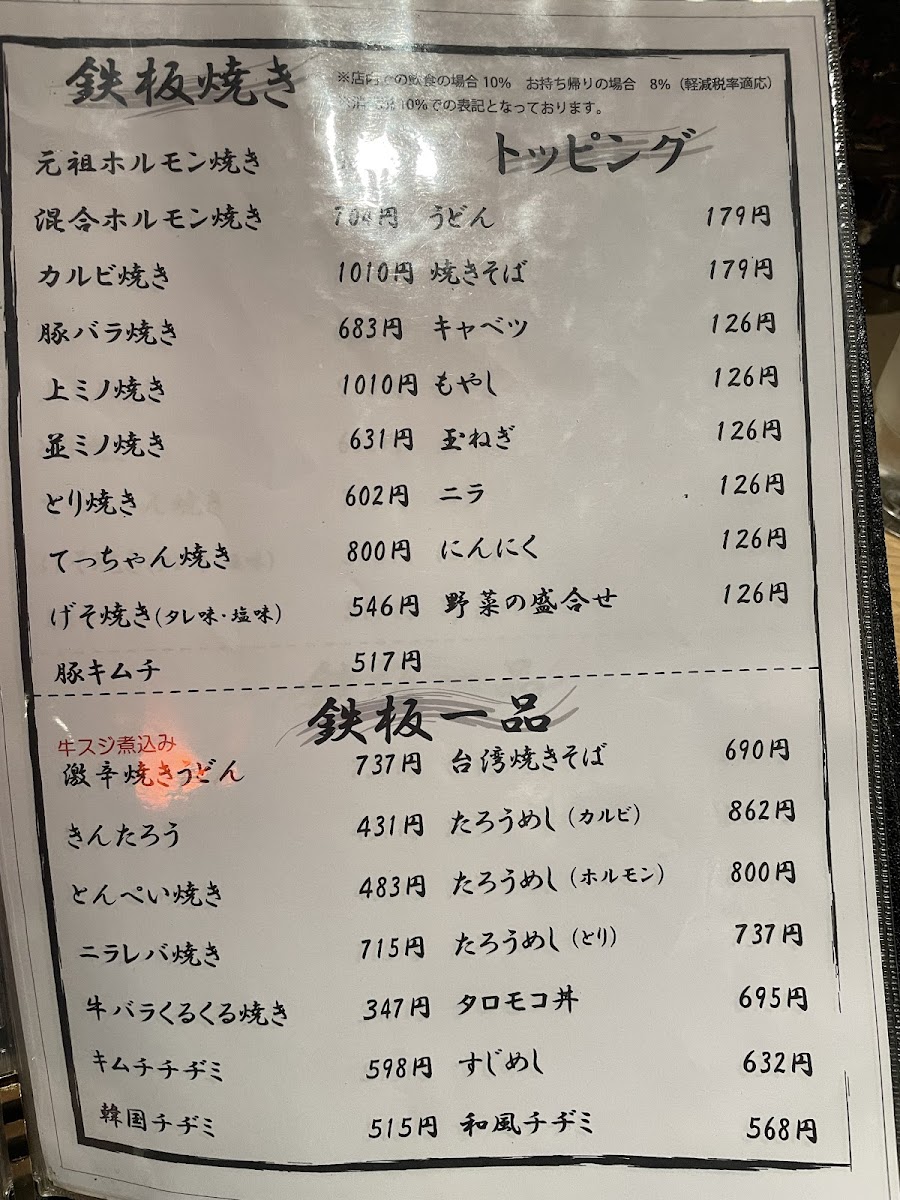 鉄板焼き
※店内での飲食の場合 10% お持ち帰りの場合 8%（軽減税率適応）
10%での表記となっております。
元祖ホルモン焼き
混合ホルモン焼き 704円
カルビ焼き 1010円
豚バラ焼き 683円
上ミノ焼き 1010円
並ミノ焼き 631円
とり焼き 602円
てっちゃん焼き 800円
げそ焼き(タレ味・塩味) 546円
豚キムチ 517円
トッピング
うどん 179円
焼きそば 179円
キャベツ 126円
もやし 126円
玉ねぎ 126円
ニラ 126円
にんにく 126円
野菜の盛合せ 126円
鉄板一品
牛スジ煮込み
激辛焼きうどん 737円
きんたろう 431円
とんぺい焼き 483円
ニラレバ焼き 715円
牛バラくるくる焼き 347円
キムチチヂミ 598円
韓国チヂミ 515円
台湾焼きそば 690円
たろうめし（カルビ） 862円
たろうめし（ホルモン） 800円
たろうめし（とり） 737円
タロモコ丼 695円
すじめし 632円
和風チヂミ 568円